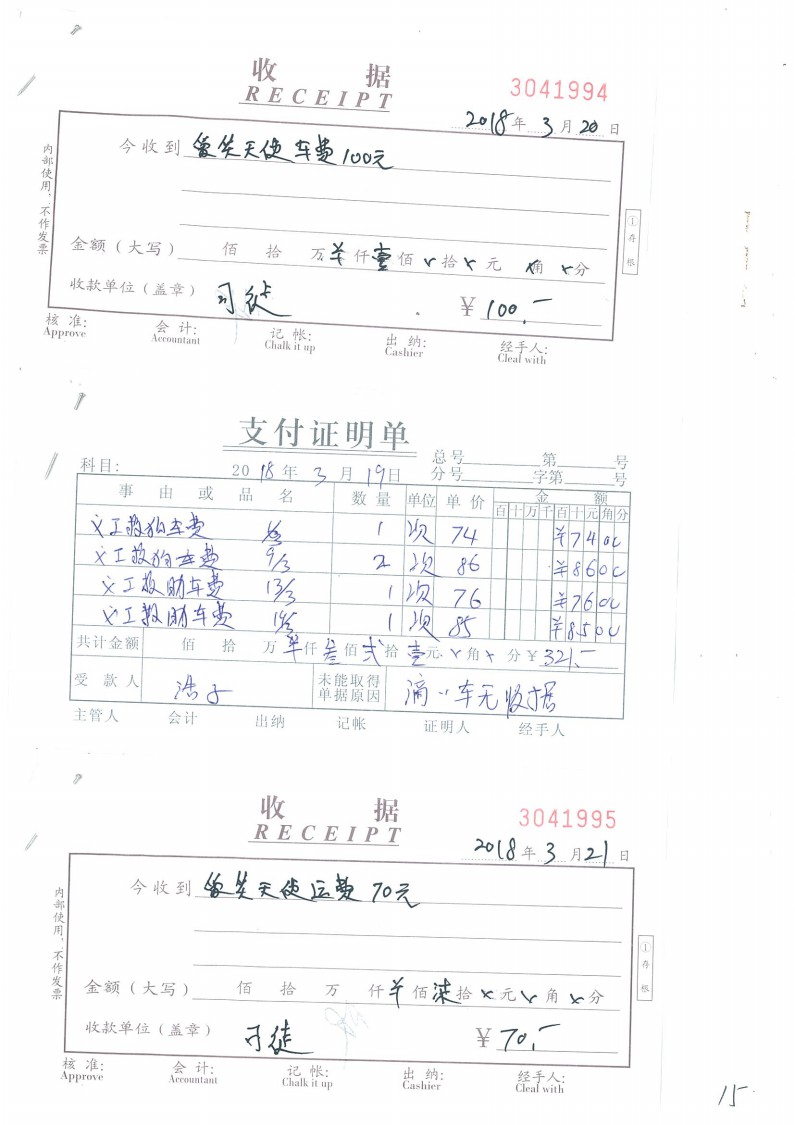 收 据
RECEIPT
3041994
2018年3月20日
今收到 微笑天使车费100元
内部使用，不作发票
①存根
金额（大写） 佰 拾 万¥仟壹佰×拾×元 ×角×分
收款单位（盖章） 司徒 ¥100.-
核 准: 会 计: 记 帐: 出 纳: 经手人:
Approve Accountant Chalk it up Cashier Cleal with
支付证明单
总号 第 号
科目: 2018年3月19日 分号 字第 号
事 由 或 品 名 数 量 单位 单 价 金 额
百十万千百十元角分
义工救狗车费 1 次 74 ¥7400
义工救狗车费 9/3 2 次 86 ¥8600
义工救助车费 13/3 1 次 76 ¥7600
义工救助车费 1 次 85 ¥8500
共计金额 佰 拾 万¥仟叁佰贰拾壹元×角×分¥321.-
受 款 人 浩子 未能取得单据原因 滴滴车无收据
主管人 会计 出纳 记帐 证明人 经手人
收 据
RECEIPT
3041995
2018年3月21日
今收到 微笑天使运费 70元
内部使用，不作发票
①存根
金额（大写） 佰 拾 万 仟¥佰柒拾×元×角×分
收款单位（盖章） 司徒 ¥70.-
核 准: 会 计: 记 帐: 出 纳: 经手人:
Approve Accountant Chalk it up Cashier Cleal with
15